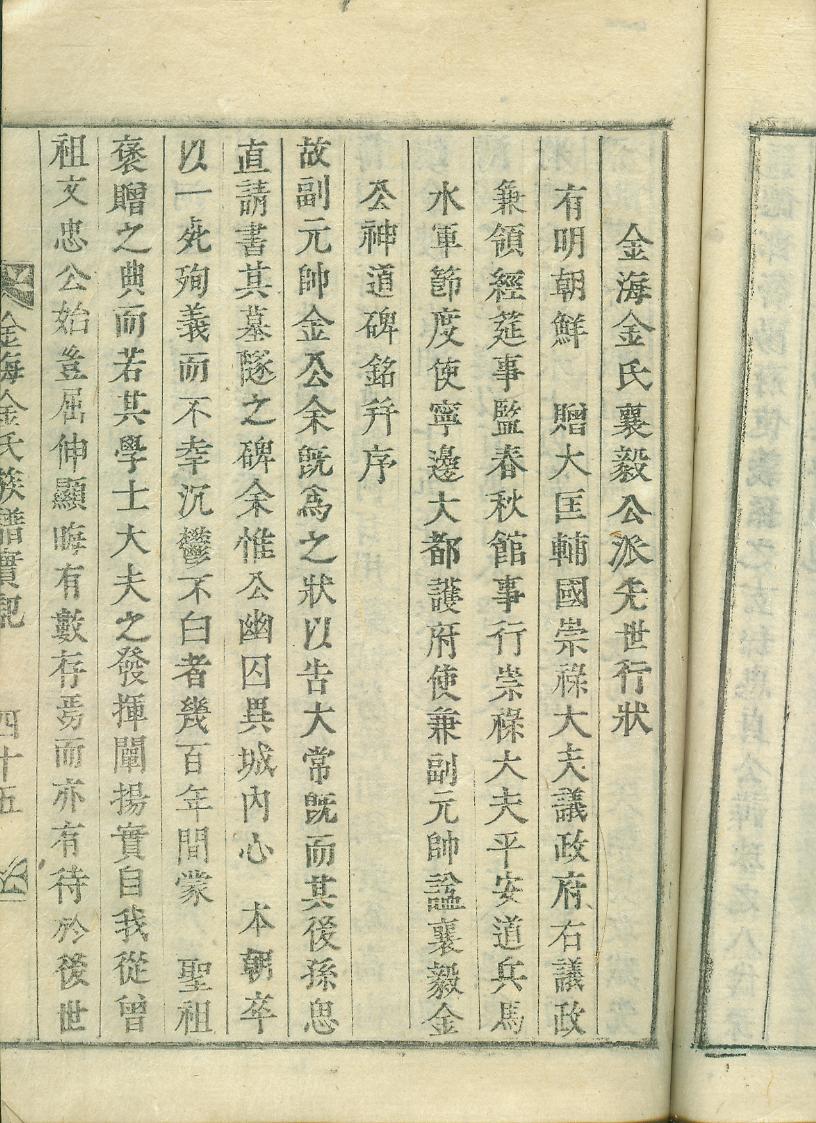 金海金氏襄毅公派先世行狀
有明朝鮮 贈大匡輔國崇祿大夫議政府右議政
兼領經筵事監春秋館事行崇祿大夫平安道兵馬
水軍節度使寧邊大都護府使兼副元帥諡襄毅金
公神道碑銘幷序
故副元帥金公余旣爲之狀以告大常旣而其後孫思
直請書其墓隧之碑余惟公幽囚異城內心 本朝卒
以一死殉義而不幸沉鬱不白者幾百年間蒙 聖祖
褒贈之典而若其學士大夫之發揮闡揚實自我從曾
祖文忠公始豈屈伸顯晦有數存焉而亦有待於後世
金海金氏族譜實記 四十五